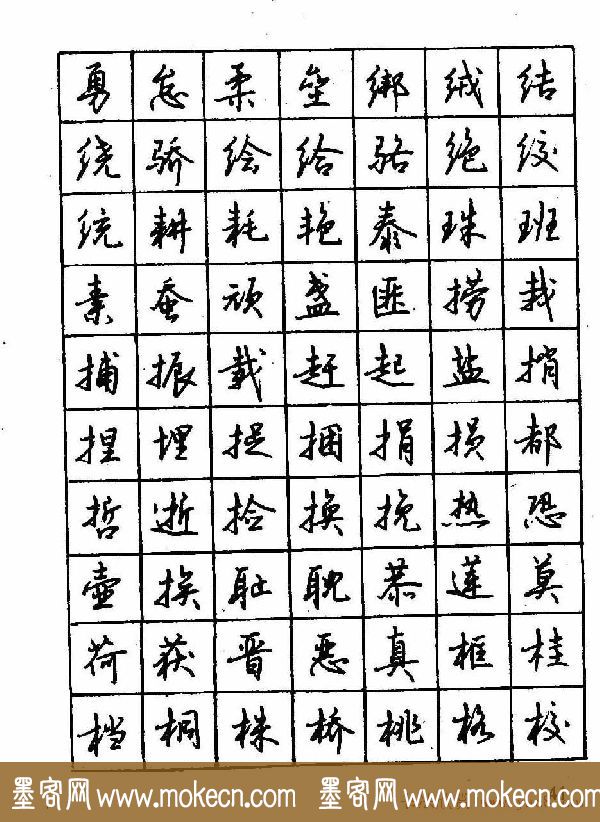 勇 怠 柔 垒 绑 绒 结
绕 骄 绘 给 骆 绝 绞
统 耕 耗 艳 泰 珠 班
素 蚕 顽 盏 匪 捞 栽
捕 振 载 赶 起 盐 捎
捏 埋 捉 捆 捐 损 都
哲 逝 捡 换 挽 热 恐
壶 挨 耻 耽 恭 莲 莫
荷 获 晋 恶 真 框 桂
档 桐 株 桥 桃 格 校
墨客网 www.mokecn.com 墨客网 www.mokecn.com